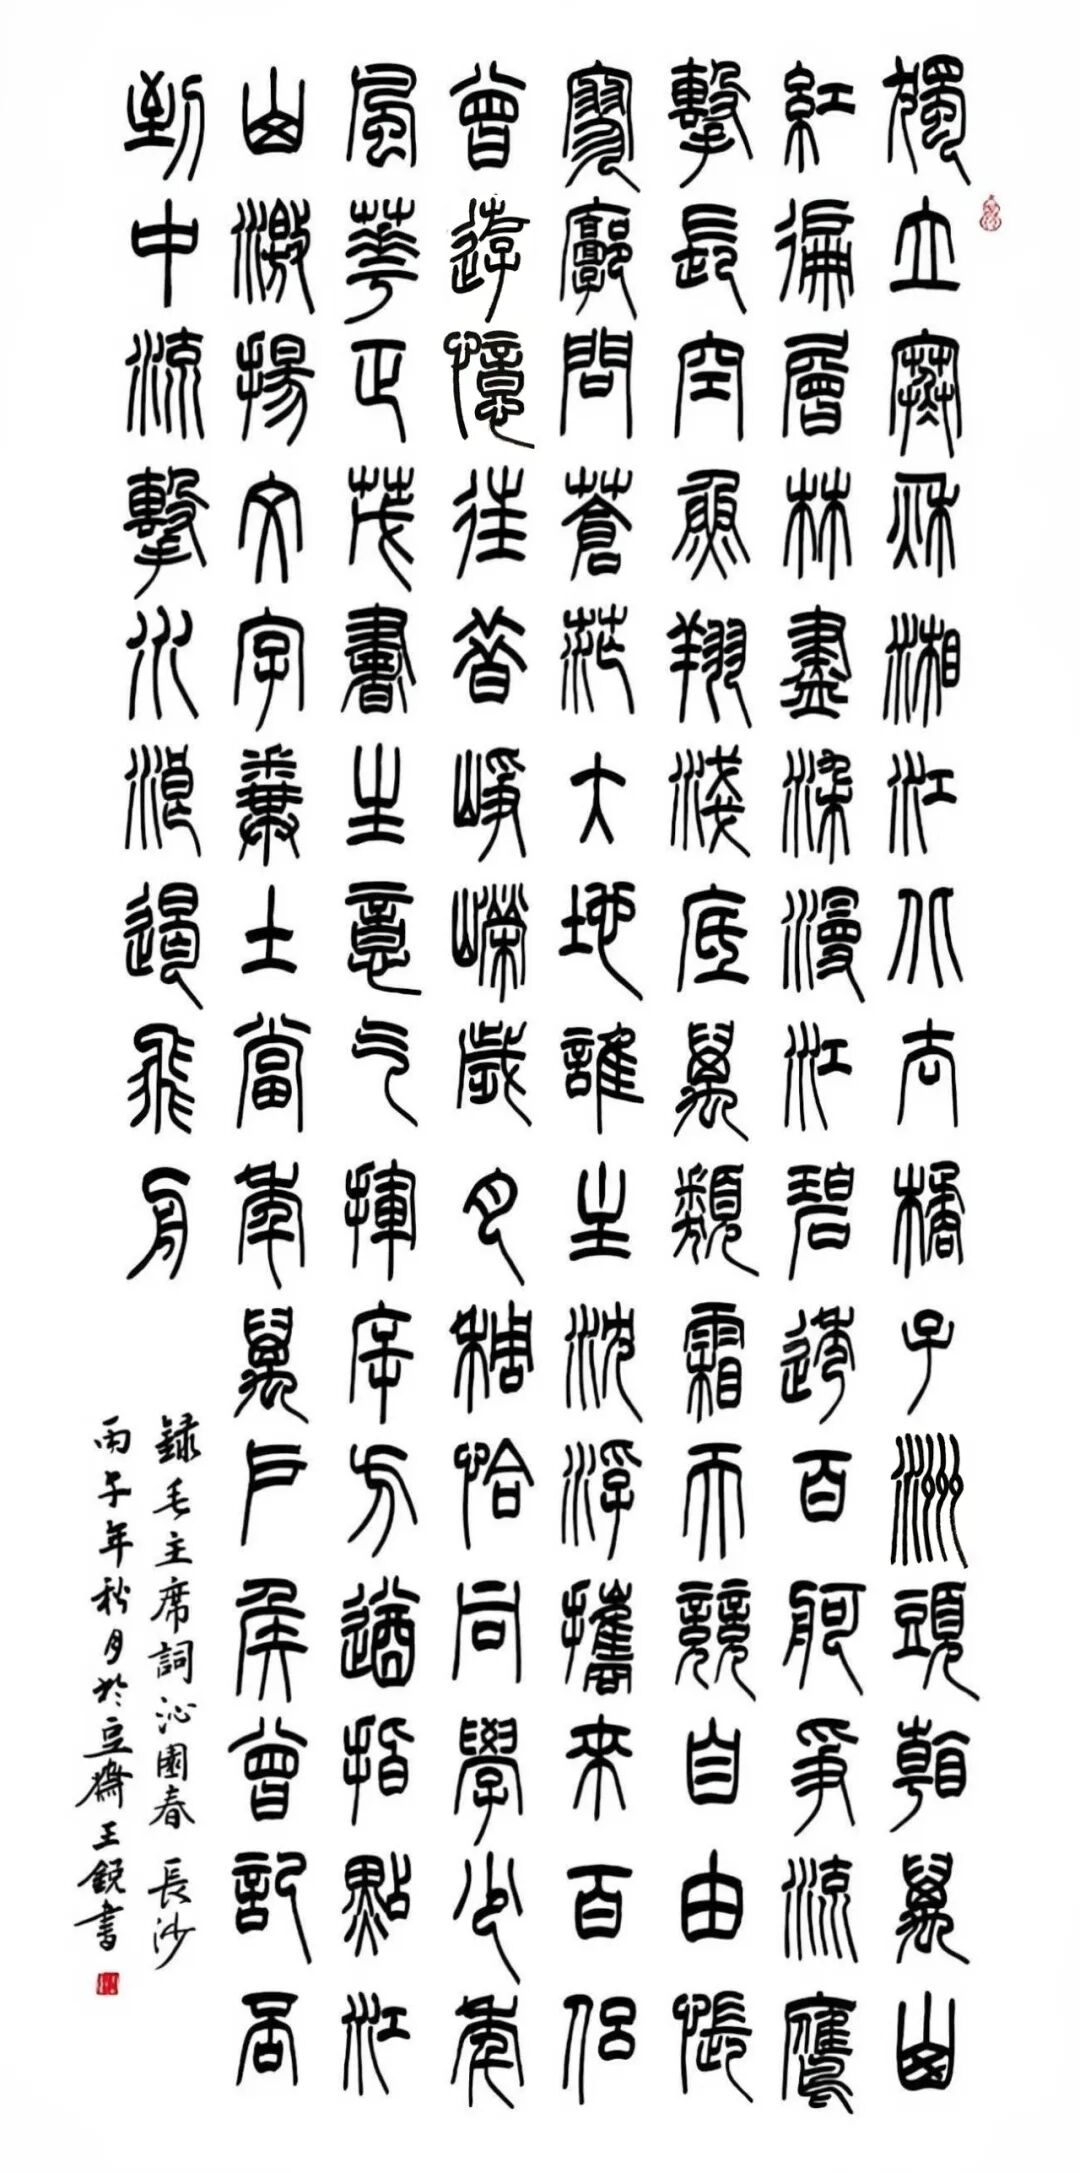 獨立寒秌湘江北去橘子洲頭看萬山
紅徧層林盡染漫江碧透百舸爭流鷹
擊長空魚翔淺底萬類霜天競自由悵
寥廓問蒼茫大地誰主沈浮攜來百侶
曾遊憶往昔崢嶸歲月稠恰同學少年
風華正茂書生意气揮斥方遒指點江
山激揚文字糞土當年萬戶侯曾記否
到中流擊水浪遏飛舟
錄毛主席詞沁園春 長沙
丙子年秋月於豆齋王銳書